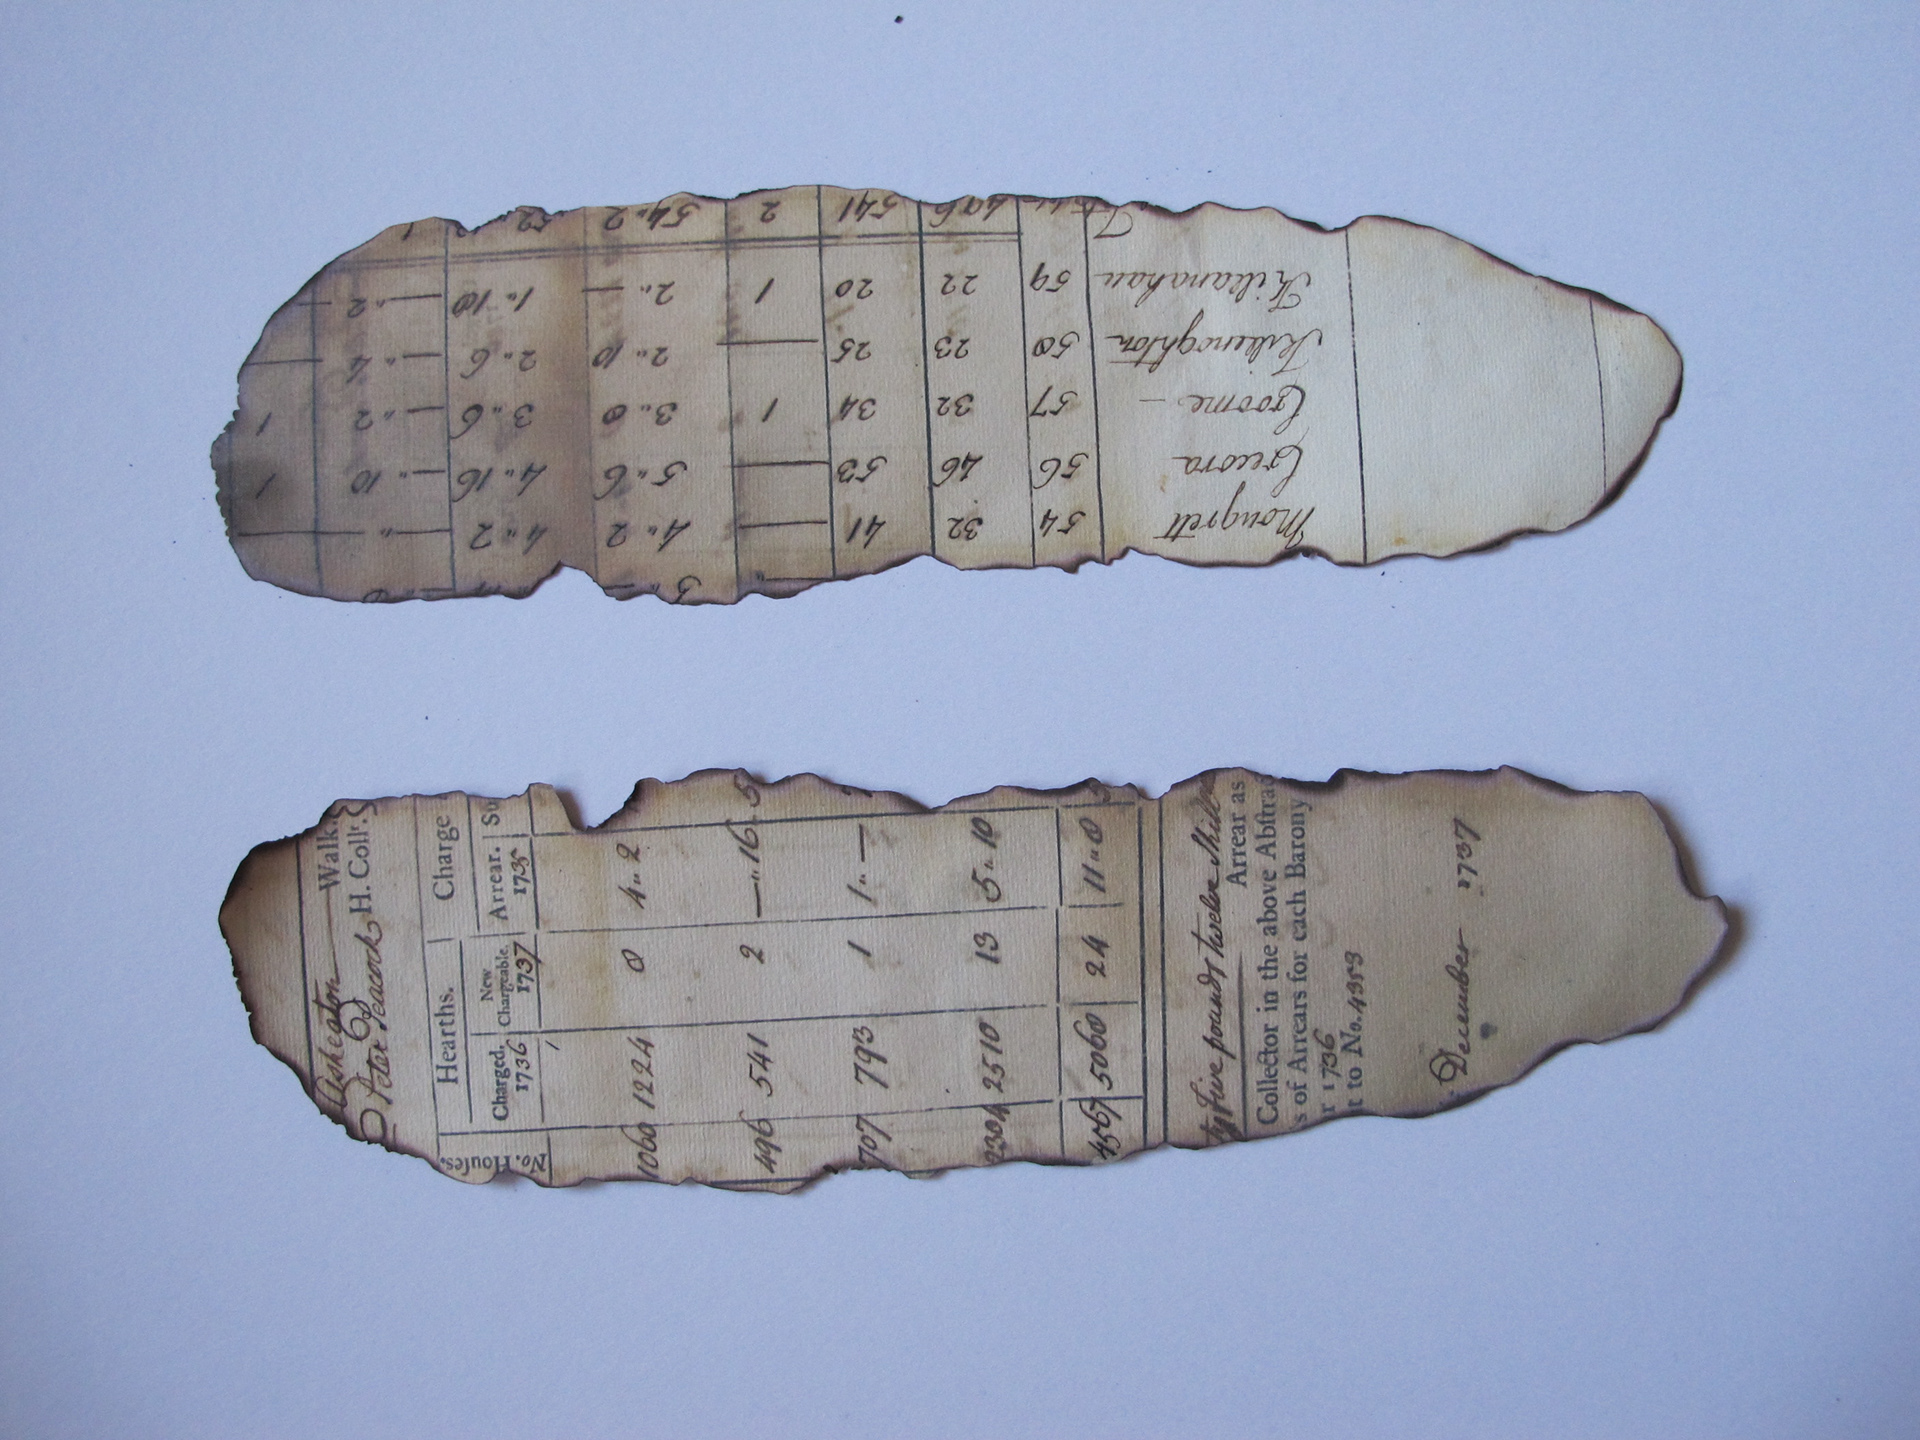 Mongrett 54 32 41 — 4" 2 4" 2 — " —
Crecora 56 46 53 — 5" 6 4" 16 — " 10 1
Croome — 57 32 34 1 3" 8 3" 6 — " 2 1
Killenoghton 50 23 25 — 2" 10 2" 6 — " 4 —
Killanahan 59 22 20 1 2" — 1" 18 — " 2 —
496 541 2 54" 2 52
Asheaton Walk.
Peter Peacock H. Collr.
Hearths. Charge
No. Houſes. Charged, 1736 New Chargeable, 1737 Arrear. 1735 Su
1060 1224 8 4" 2
496 541 2 —" 16 5
707 793 1 1" —
2304 2510 13 5" 10
4567 5068 24 11" 8
ty five pounds twelve Shill
Arrear as
Collector in the above Abſtrac
s of Arrears for each Barony
r 1736
t to No. 4953
December 1737